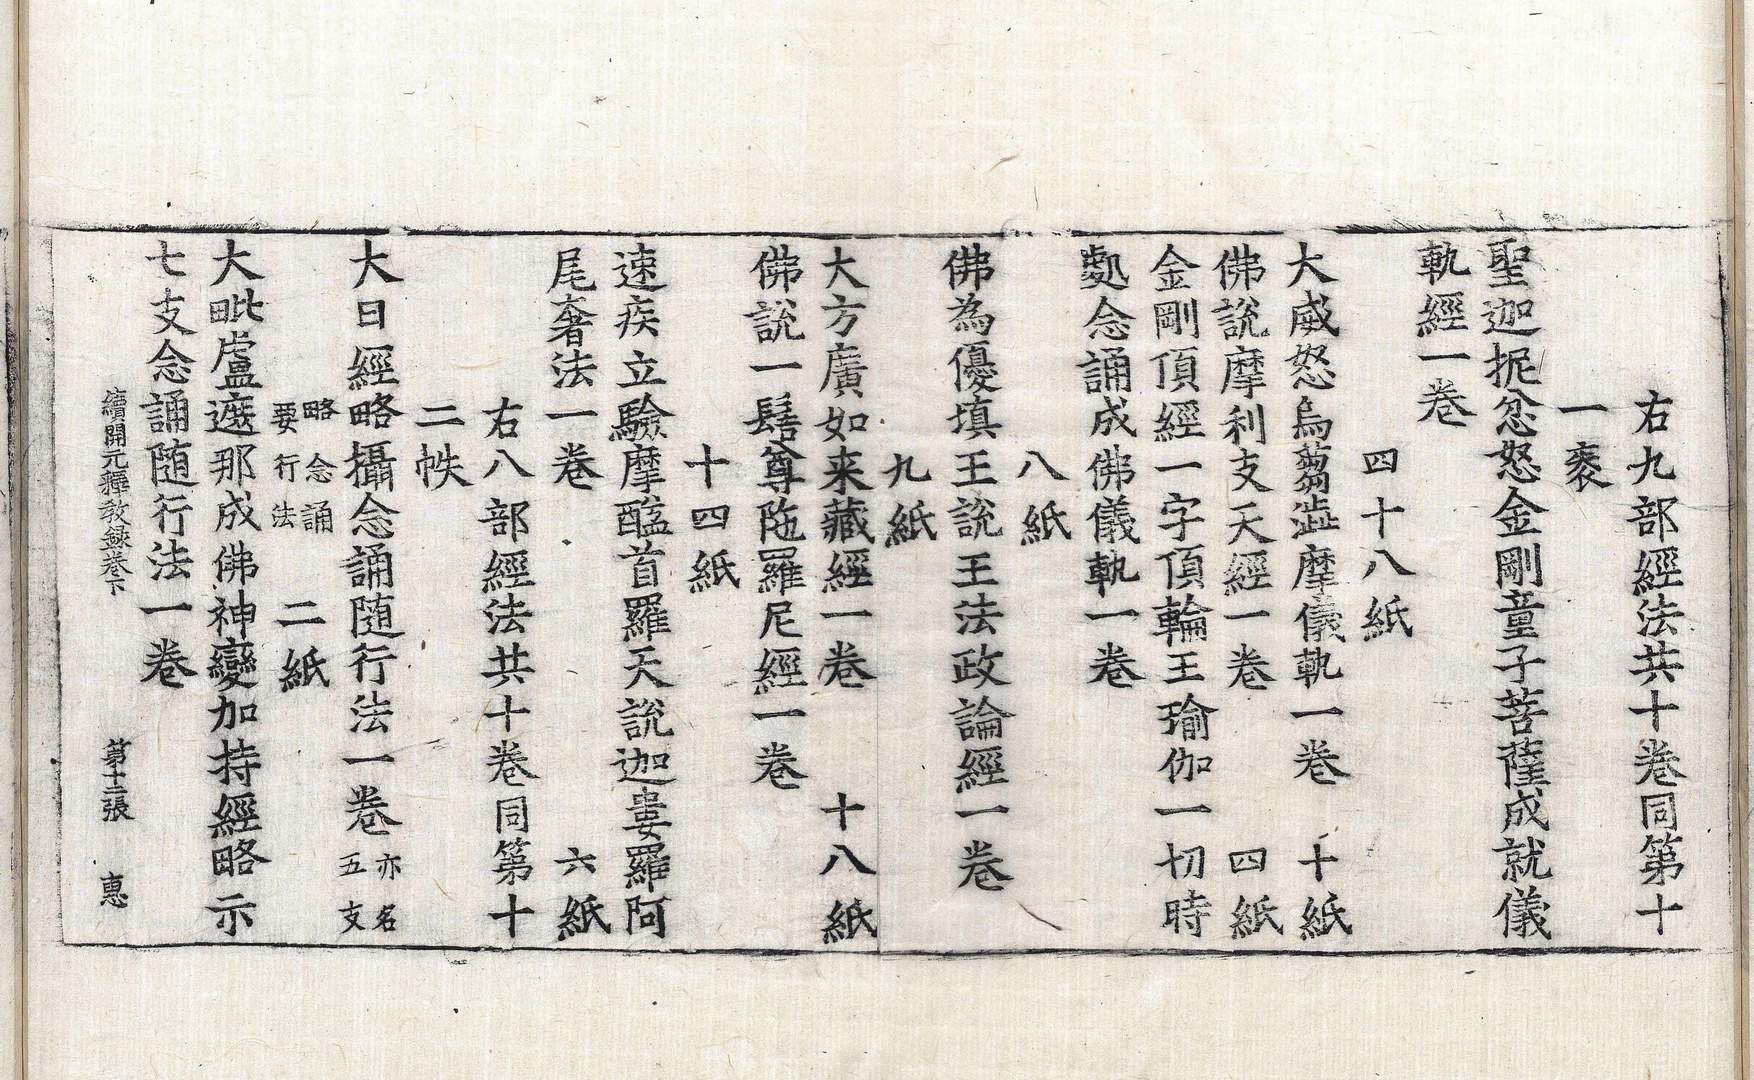 右九部經法共十卷同第十
一袠
聖迦抳忿怒金剛童子菩薩成就儀
軌經一卷
四十八紙
大威怒烏蒭澁摩儀軌一卷 十紙
佛說摩利支天經一卷 四紙
金剛頂經一字頂輪王瑜伽一切時
處念誦成佛儀軌一卷
八紙
佛為優填王說王法政論經一卷
九紙
大方廣如来藏經一卷 十八紙
佛說一髻尊陁羅尼經一卷
十四紙
速疾立驗摩醯首羅天說迦婁羅阿
尾奢法一卷 六紙
右八部經法共十卷同第十
二帙
大日經略攝念誦随行法一卷 亦名五支
略念誦要行法 二紙
大毗盧遮那成佛神變加持經略示
七支念誦随行法一卷
續開元釋教録卷下 第十二張 惠